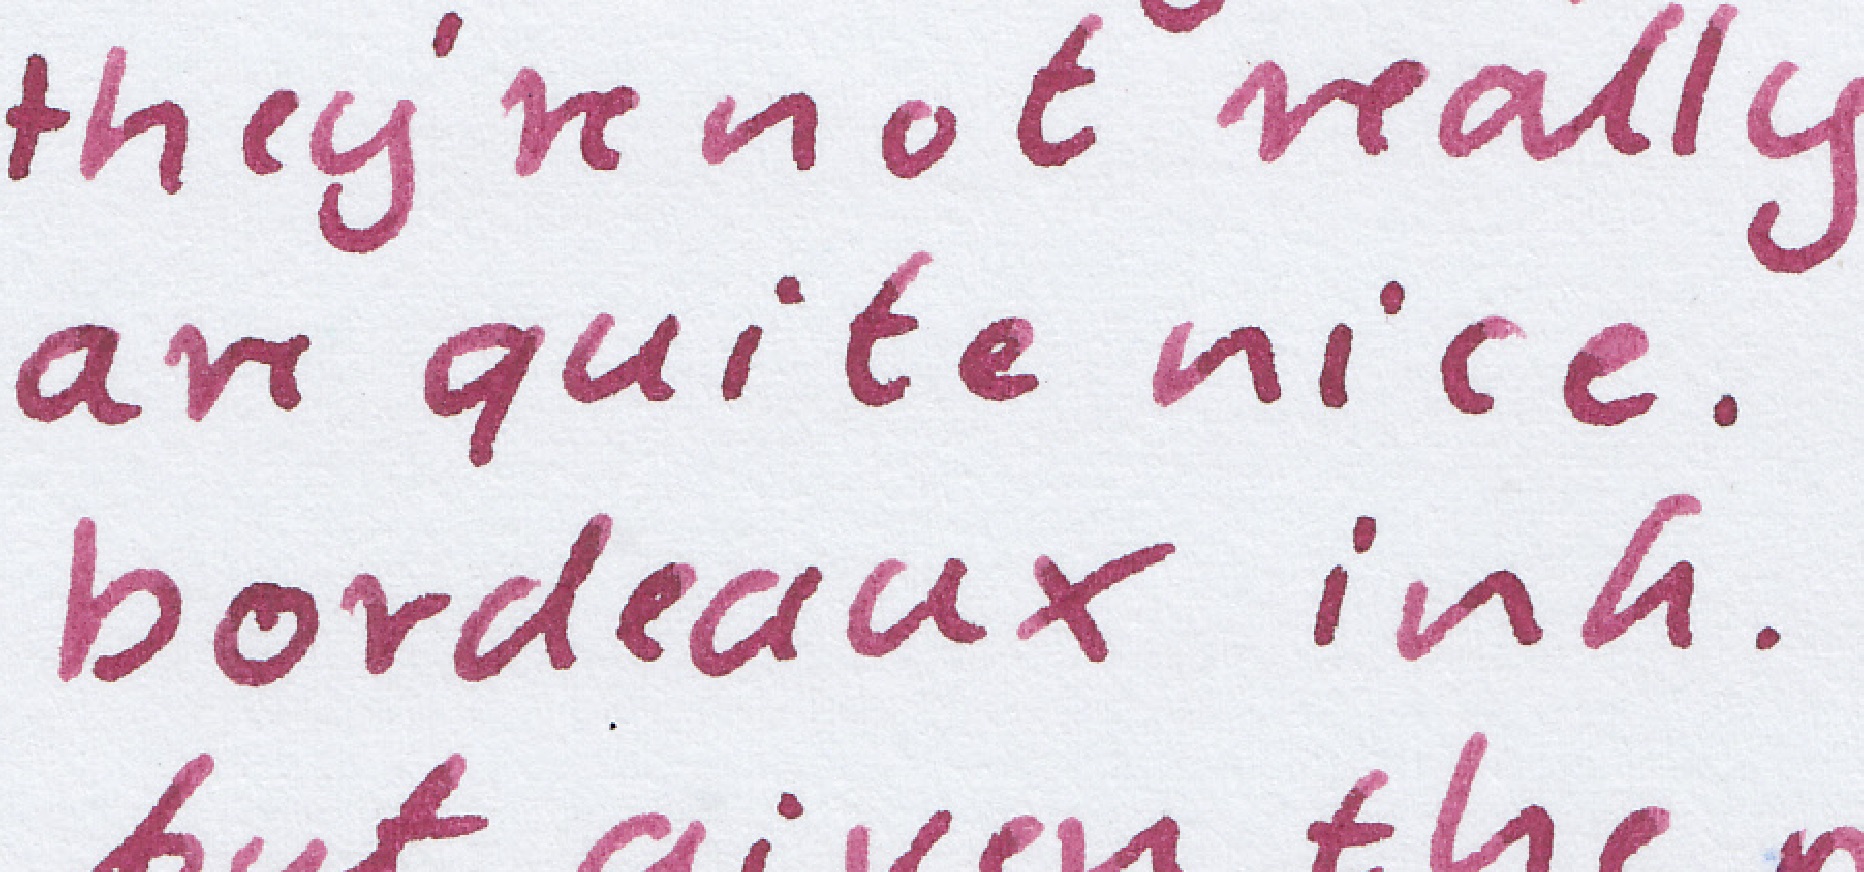 they're not really
are quite nice.
bordeaux ink.
but given the